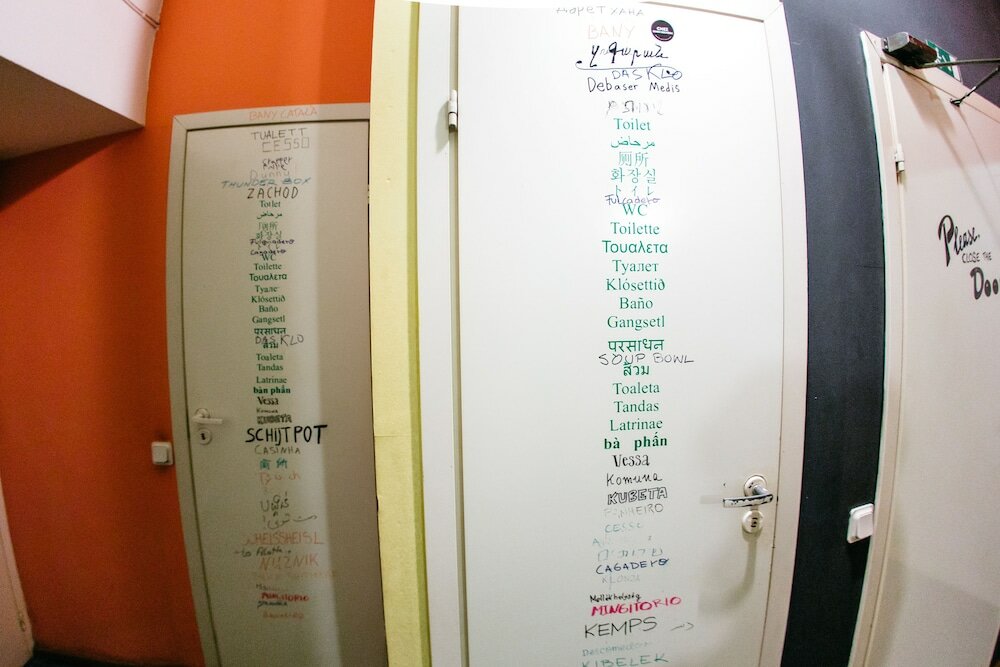 BANY CATALÀ
TUALETT
CESSO
DUNNY
THUNDER BOX
ZACHOD
Toilet
مرحاض
厕所
화장실
Fulcadero
Cagadero
WC
Toilette
Τουαλετα
Туалет
Klósettið
Baño
Gangsetl
परसाधन
DAS KLO
ส้วม
Toaleta
Tandas
Latrinae
bàn phấn
Vessa
Komuna
KUBETA
SCHIJTPOT
CASINHA
厕所
WHEISSHEISL
NUZNIK
MINGITORIO
ДОРЕТ ХАНА
BANY
DAS KLO
Debaser Medis
Toilet
مرحاض
厕所
화장실
トイレ
Fulcadero
WC
Toilette
Τουαλετα
Туалет
Klósettið
Baño
Gangsetl
परसाधन
SOUP BOWL
ส้วม
Toaleta
Tandas
Latrinae
bà phấn
Vessa
Komuna
KUBETA
PINHEIRO
CESSO
CAGADERO
KLONZA
Mellékhelység
MINGITORIO
KEMPS
Descomedor
KIBELEK
Please
CLOSE THE
Doo